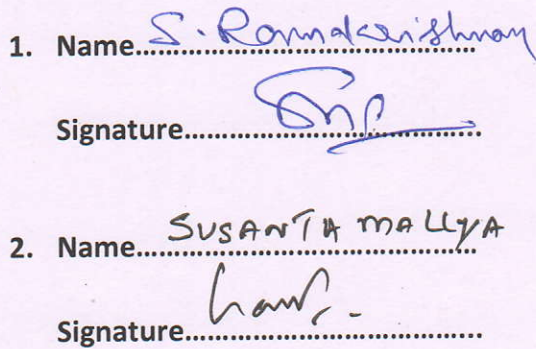 1. Name S. Ramakrishnan
Signature
2. Name SUSANTA MALLYA
Signature